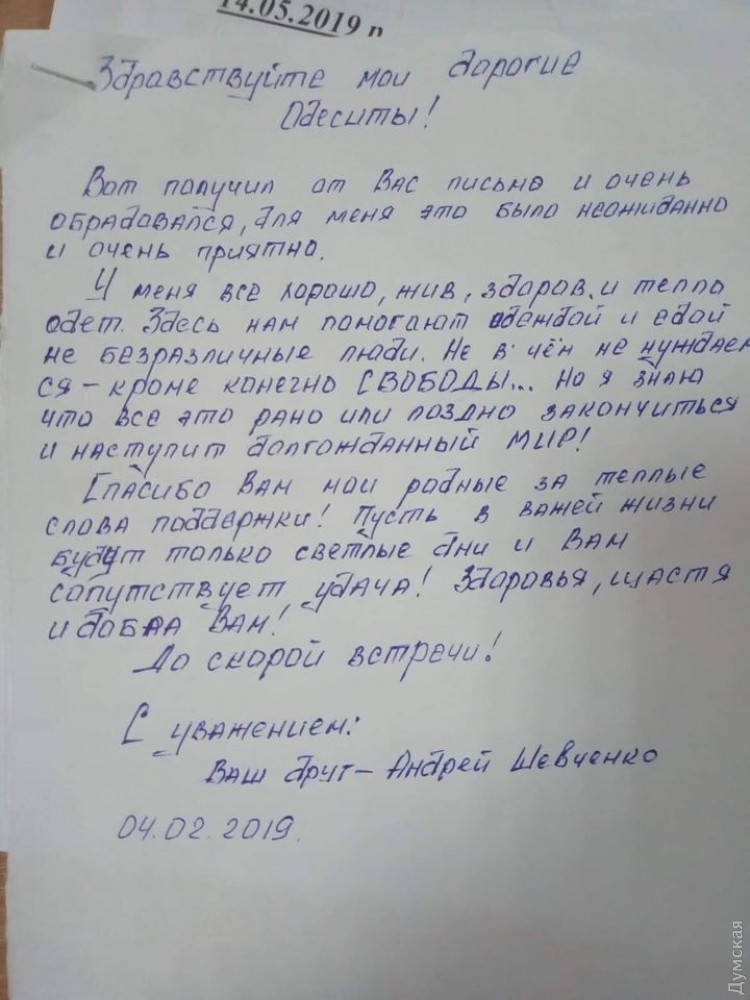 14.05.2019 р
Здравствуйте мои дорогие
Одеситы!
Вот получил от Вас письмо и очень
обрадовался, для меня это было неожиданно
и очень приятно.
У меня все хорошо, жив, здоров и тепло
одет. Здесь нам помогают одеждой и едой
не безразличные люди. Не в чём не нуждаем
ся - кроме конечно СВОБОДЫ... Но я знаю
что все это рано или поздно закончиться
и наступит долгожданный МИР!
Спасибо Вам мои родные за теплые
слова поддержки! Пусть в вашей жизни
будут только светлые дни и Вам
сопутствует удача! Здоровья, щастя
и добра Вам!
До скорой встречи!
С уважением:
Ваш друг - Андрей Шевченко
04.02.2019.
Думская